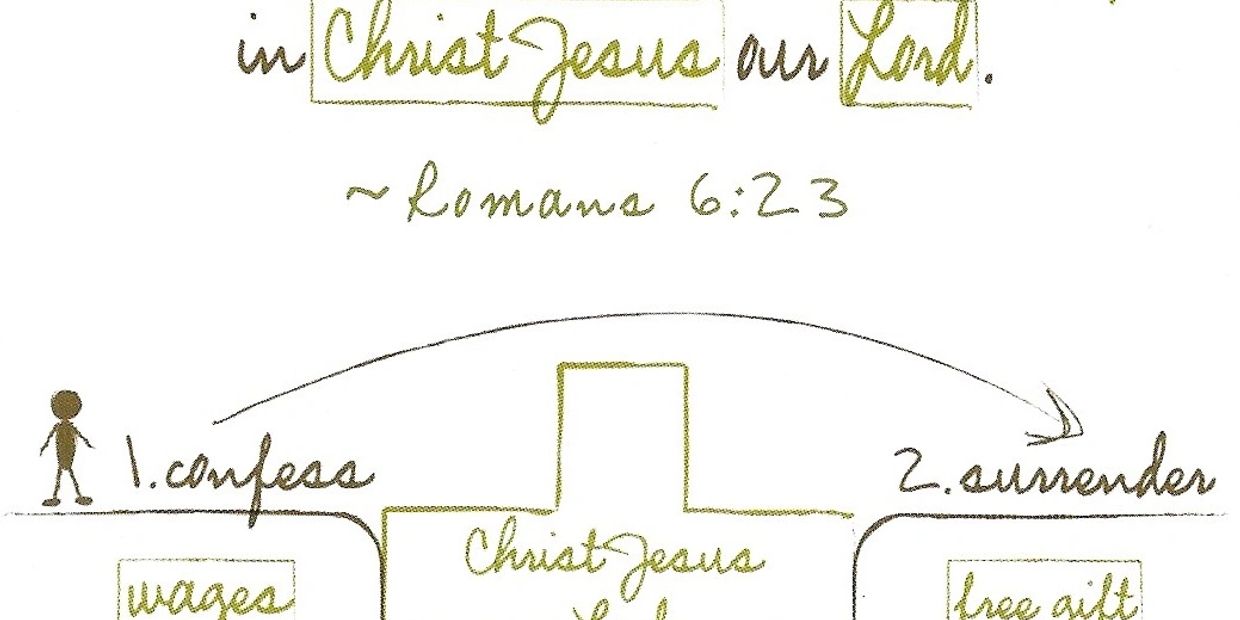 in Christ Jesus our Lord.
~Romans 6:23
1. confess
2. surrender
Christ Jesus
wages
free gift